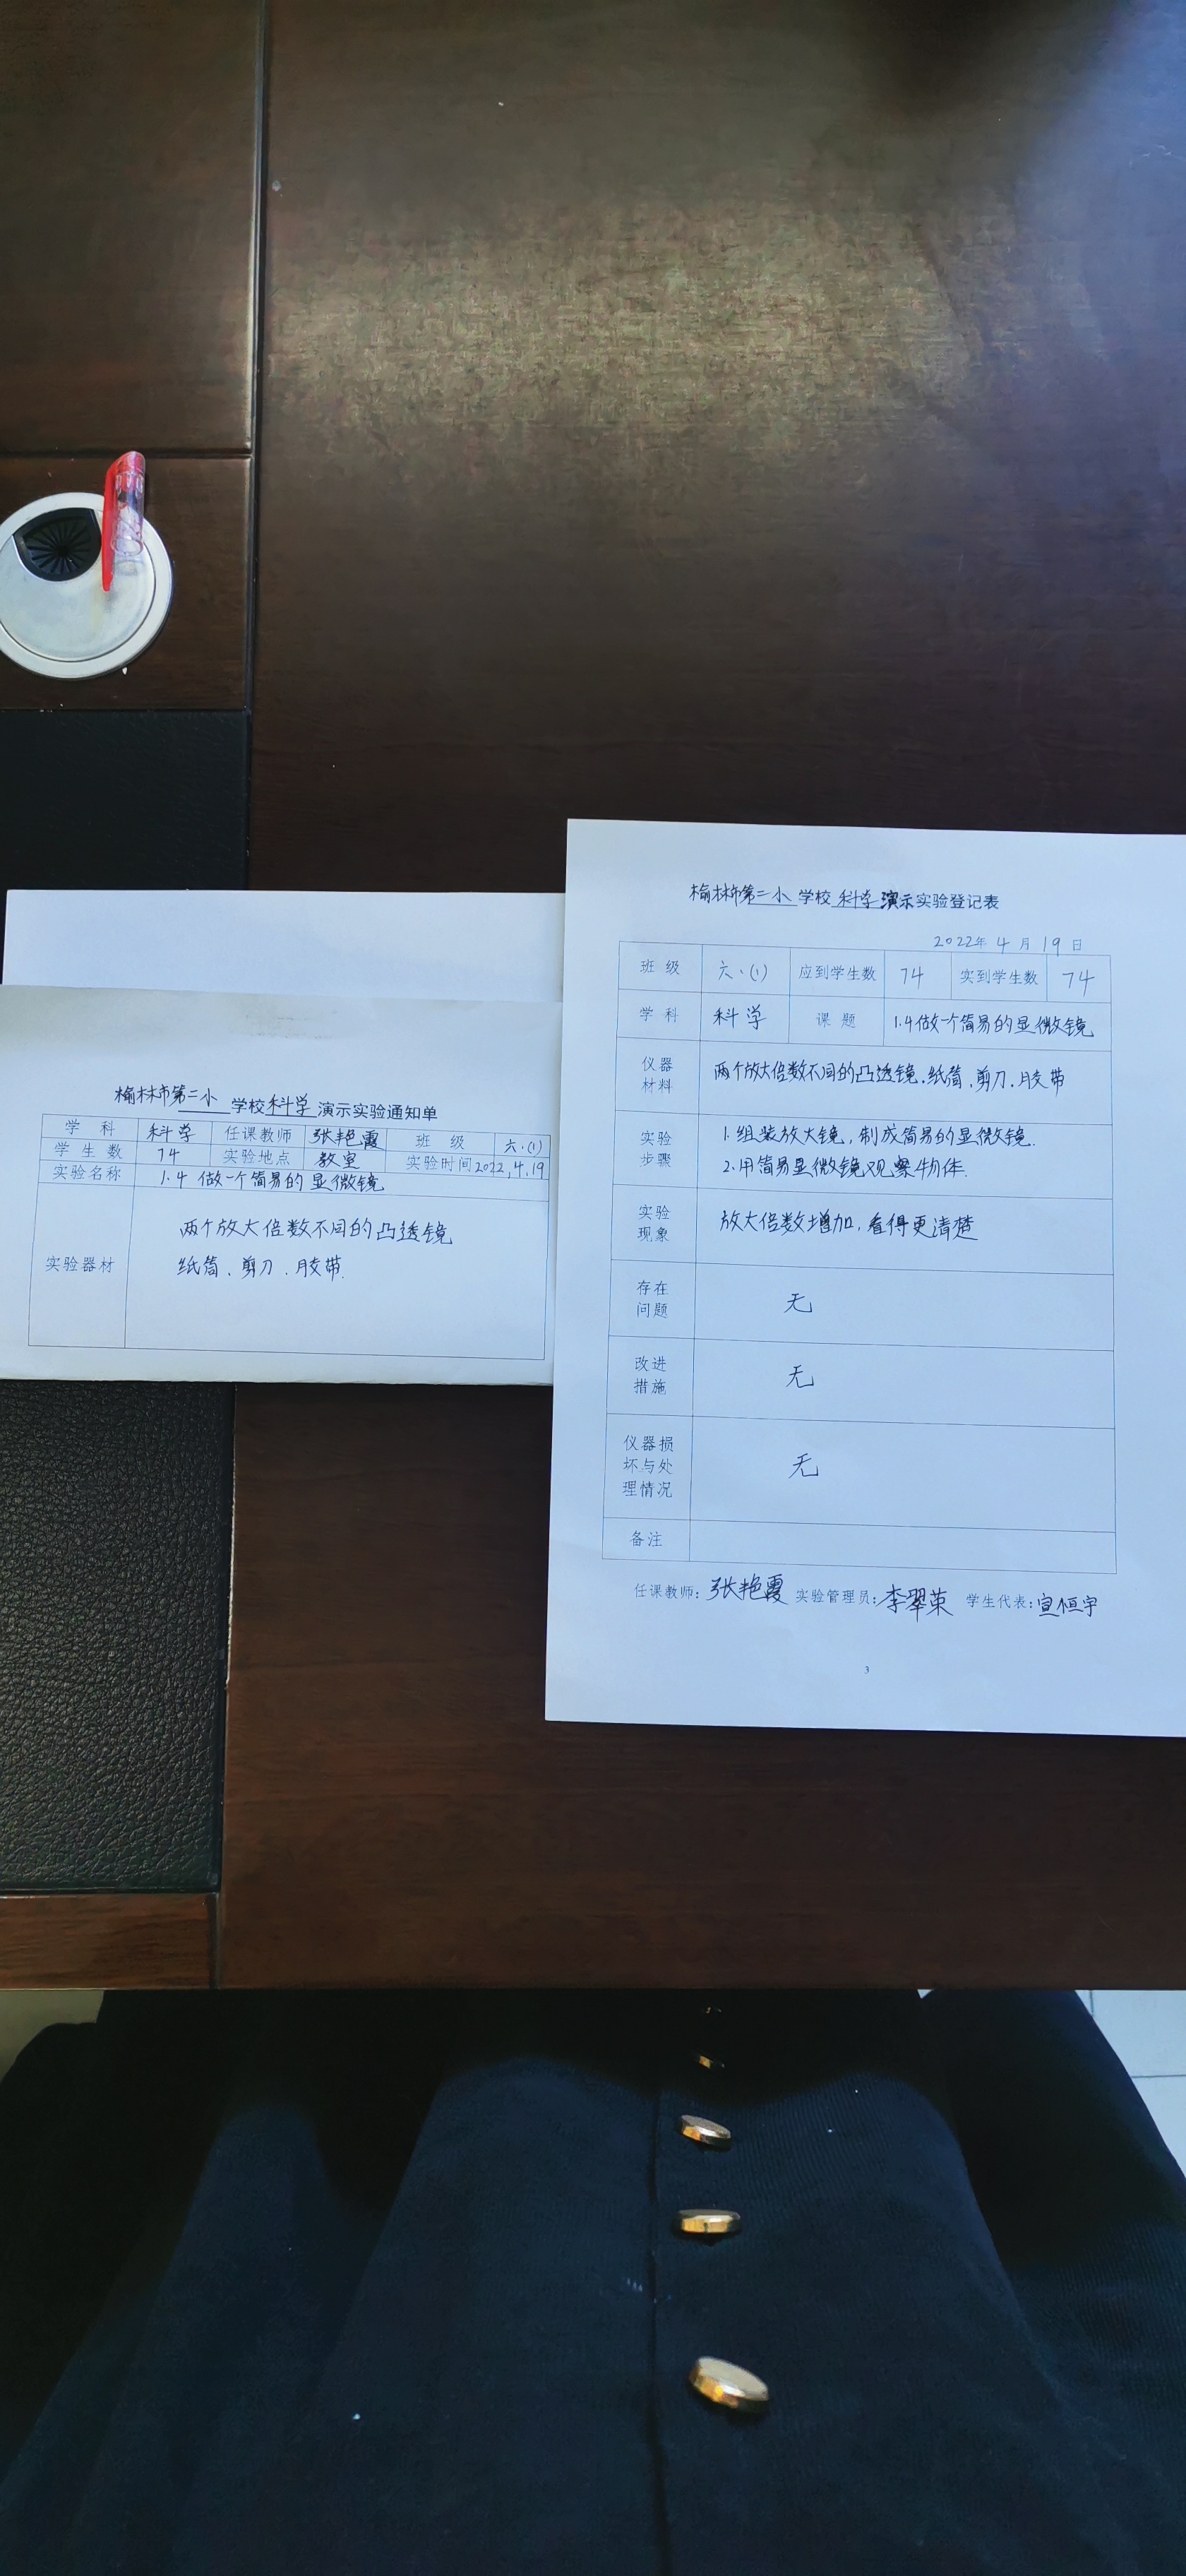 榆林市第二小 学校 科学 演示实验通知单
学 科 科学 任课教师 张艳霞 班 级 六.(1)
学 生 数 74 实验地点 教室 实验时间 2022.4.19
实验名称 1.4 做一个简易的显微镜
实验器材 两个放大倍数不同的凸透镜
纸筒.剪刀.胶带.
榆林市第二小 学校 科学 演示实验登记表
2022年 4 月 19 日
班 级 六.(1) 应到学生数 74 实到学生数 74
学 科 科学 课 题 1.4做一个简易的显微镜
仪器
材料
两个放大倍数不同的凸透镜.纸筒.剪刀.胶带
实验
步骤
1.组装放大镜,制成简易的显微镜.
2.用简易显微镜观察物体.
实验
现象
放大倍数增加,看得更清楚
存在
问题
无
改进
措施
无
仪器损
坏与处
理情况
无
备注
任课教师: 张艳霞 实验管理员: 李翠荣 学生代表: 宣恒宇
3